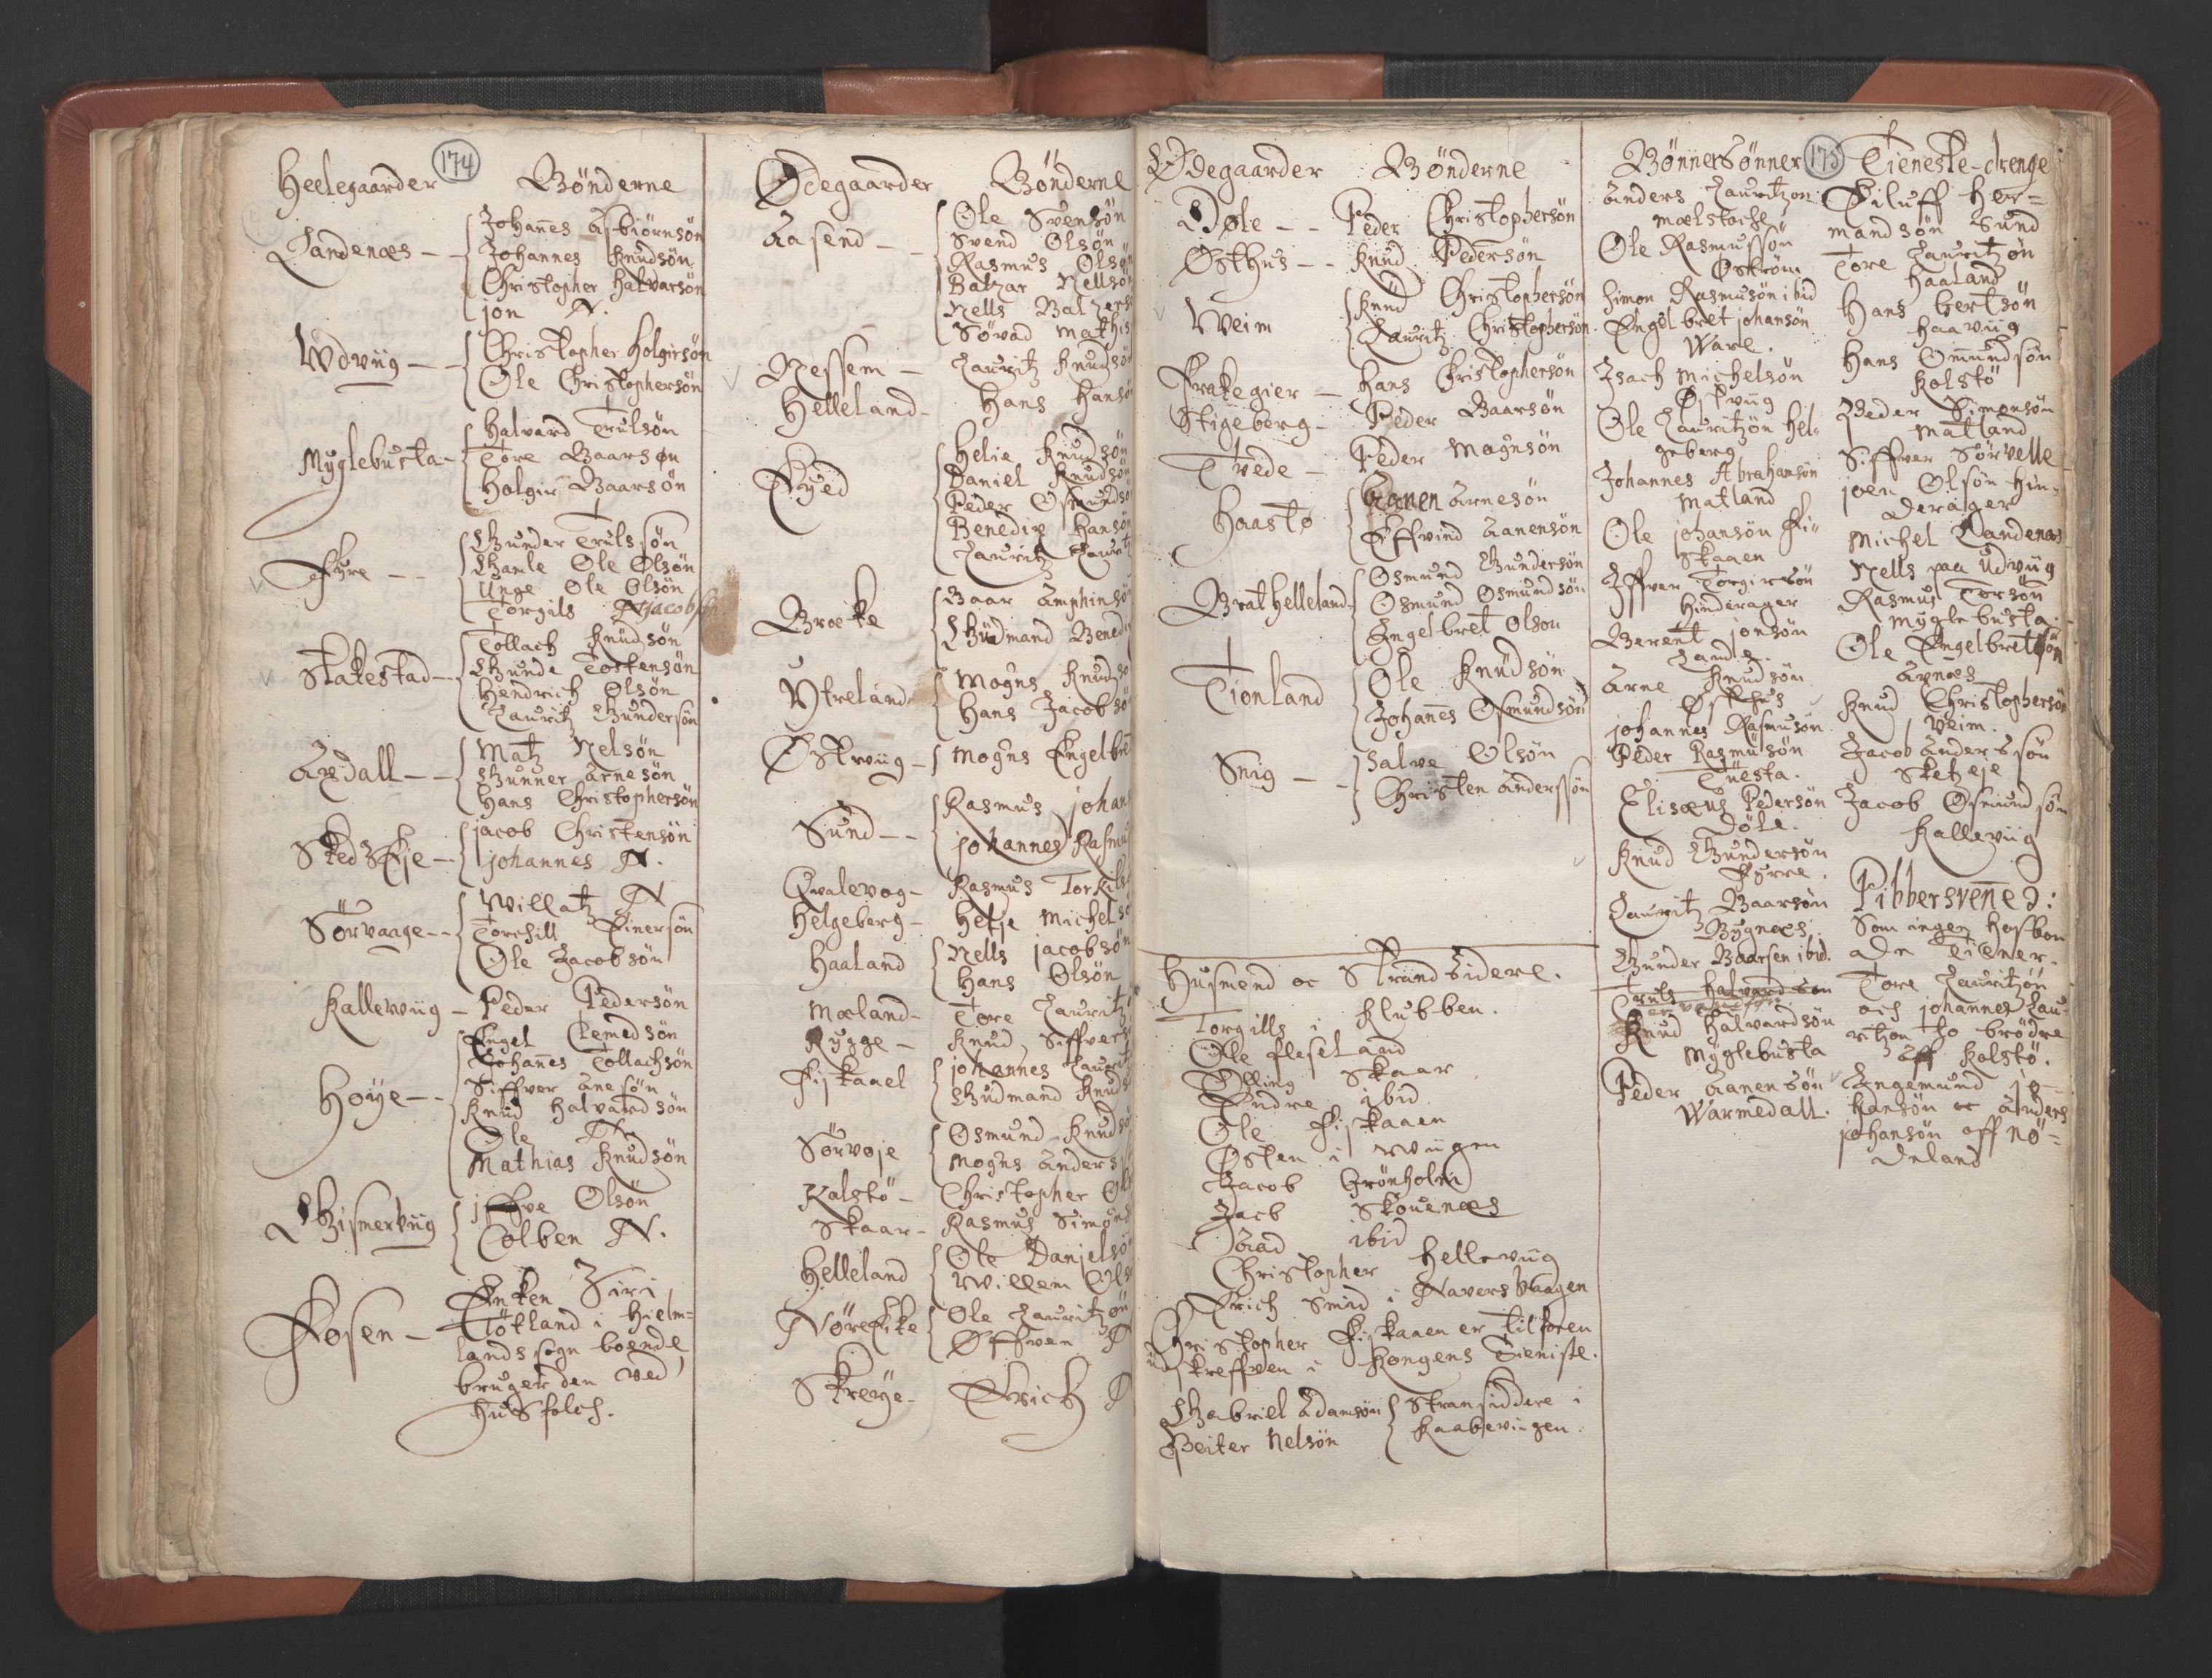 174
Heelegaarder Bønderne
Landenæs - Johañes Asbiörnsön
Johannes Knudsön
Christopher Halvarsön
jon N.
Wdviig - Christopher Holgirsön
Ole Christophersön
Halvard Trulsön
Myglebusta - Tore Baarsøn
Holgir Baarsön
Gunder Trulssön
Fyre - Gamle Ole Olsön
Unge Ole Olsön
Torgils N
Tollach Knudsön
Stakestad - Gunde Tostensön
Hendrich Olsön
Lauritz Gundersön
Matz Nelsön
Axdall - Gunner Arnesön
Hans Christophersön
jacob Christensön
johannes N.
Willatz N
Sörvaage - Torchill Einersön
Ole Jacobsön
Kallewiig - Peder Pedersön
Engel Clemedsön
Johañes Tollachsön
Høye - Siffver Anesön
Knud Halvardsön
Ole N.
Mathias Knudsön
Gismerviig jffve Olsön
Tolben N.
Fosen - Enken Siri
Flötland i Hielm=
lands sogn boende
bruger den ved
Husfolch.
Ødegaarder Bönderne
Aasend - Ole Svensön
Svend Olsön
Rasmus Olsøn
Balzar Nellsö
Nells Balzers
Sövad Mathis
Nessem - Lauritz Knudsö
Helleland - Hans Hansö
Helie Knudsön
Ryed Daniel Knudsön
Peder Osmundsö
Benedix Hansön
Lauritz Laurt
Broeke Baar Amphinsö
Gudmand Bened
Vtreland Mogns Knudsö
Hans Jacobsö
Østwiig - Mogns Engelbre
Sund - Rasmus johan
johannes Rasmu
Qvalevog - Rasmus Torkils
Helgeberg - Helje Michels
Haaland Nells jacobsön
Hans Olsön
Mæland - Tore Lauritz
Rygge - Knud Siffvers
Fiskaael johannes Laurit
Gudmand Knuds
Sörvoje Osmund Knudsö
Mogns Anders
Kalstö - Christopher Ol
Skaar - Rasmus Simons
Helleland Ole Danjelsö
Willem Ols
Nöreike Ole Lauritzön
Øffven N
Skreye - Erich
Ødegaarder Bönderne
Døle - - Peder Christophersön
Østhus - - Knud Pedersön
Weim Knud Christophersön
Lauritz Christophersön
Frakegier - Hans Christophersön
Stigeberg - Peder Baarsön
Tvede - Peder Magnsön
Haasto Aanen Arnesön
Effvind Aanensön
Osmund Gundersön
Brat Helleland Osmund Osmundsön
Engelbret Olson
Tionland Ole Knudsön
Johañes Osmundsön
Snig - Salve Olsön
Christen Anderssön
Husmend oc Strandsidere.
Torgills i Klubben.
Olle fleseland
Elling Skaar
Endre ibid
Ole Fiskaaen
Østen i Wiigen
Jacob Grönholm
Jacb Skouenæs
Aad ibid
Christopher Hellewiig
Erich Smid i Naversvaagen
Christopher Fiskaaen er tilforen
udskreffven i Kongens Tieniste.
Gabriel Adamsön Stransiddere i
Peiter Nelsön Kaabeviigen.
175
Bönnersönner
Anders Lauritzon
Mælstache
Ole Rasmussön
Øströn.
Simon Rasmusön ibid
Engelbret johansön
Ware.
Isach Michelsön
Østviig
Ole Lauritzön Hel=
geberg
Johannes Abrahamsön
Matland
Ole johansön Fi=
skaaen
Iffver Torgirsön
Hinderager
Berent jonsön
Sandle.
Arne Knudsön
Østhus
johannes Rasmusön
Peder Rasmusön
Tuesta.
Elisæus Pedersön
Döle.
Knud Gundersön
Fyrre.
Lauritz Baarsön
Bygnæs.
Gunder Baarsen ibid.
Truls Halvardsön
Knud Halvardsön
Myglebusta
Peder Aanensön
Warmedall.
Tieneste-drenge
Eiluff Her=
mandsön Sund
Tore Lauritzön
Haaland
Hans bertsön
Haaviig
Hans Omundsön
Kolstö
Peder Simensön
Matland
Siffver Sörvelle
joen Olsön Hin=
derager
Michel Landenæs
Nells paa Udviig
Rasmus Torsön
Myglebusta.
Ole Engelbretsön
Arnæs
Knud Christophersön
Veim.
Jacob Anderssön
Sketzeje
Jacob Osmundsön
Kallewiig
Pibbersvene:
Som ingen Hosbon
de Tiener.
Tore Lauritzön
och johannes Lau=
ritzon to brödre
aff Kolstö.
Ingemund jo=
hansön oc Anders
johansön aff Nö=
deland